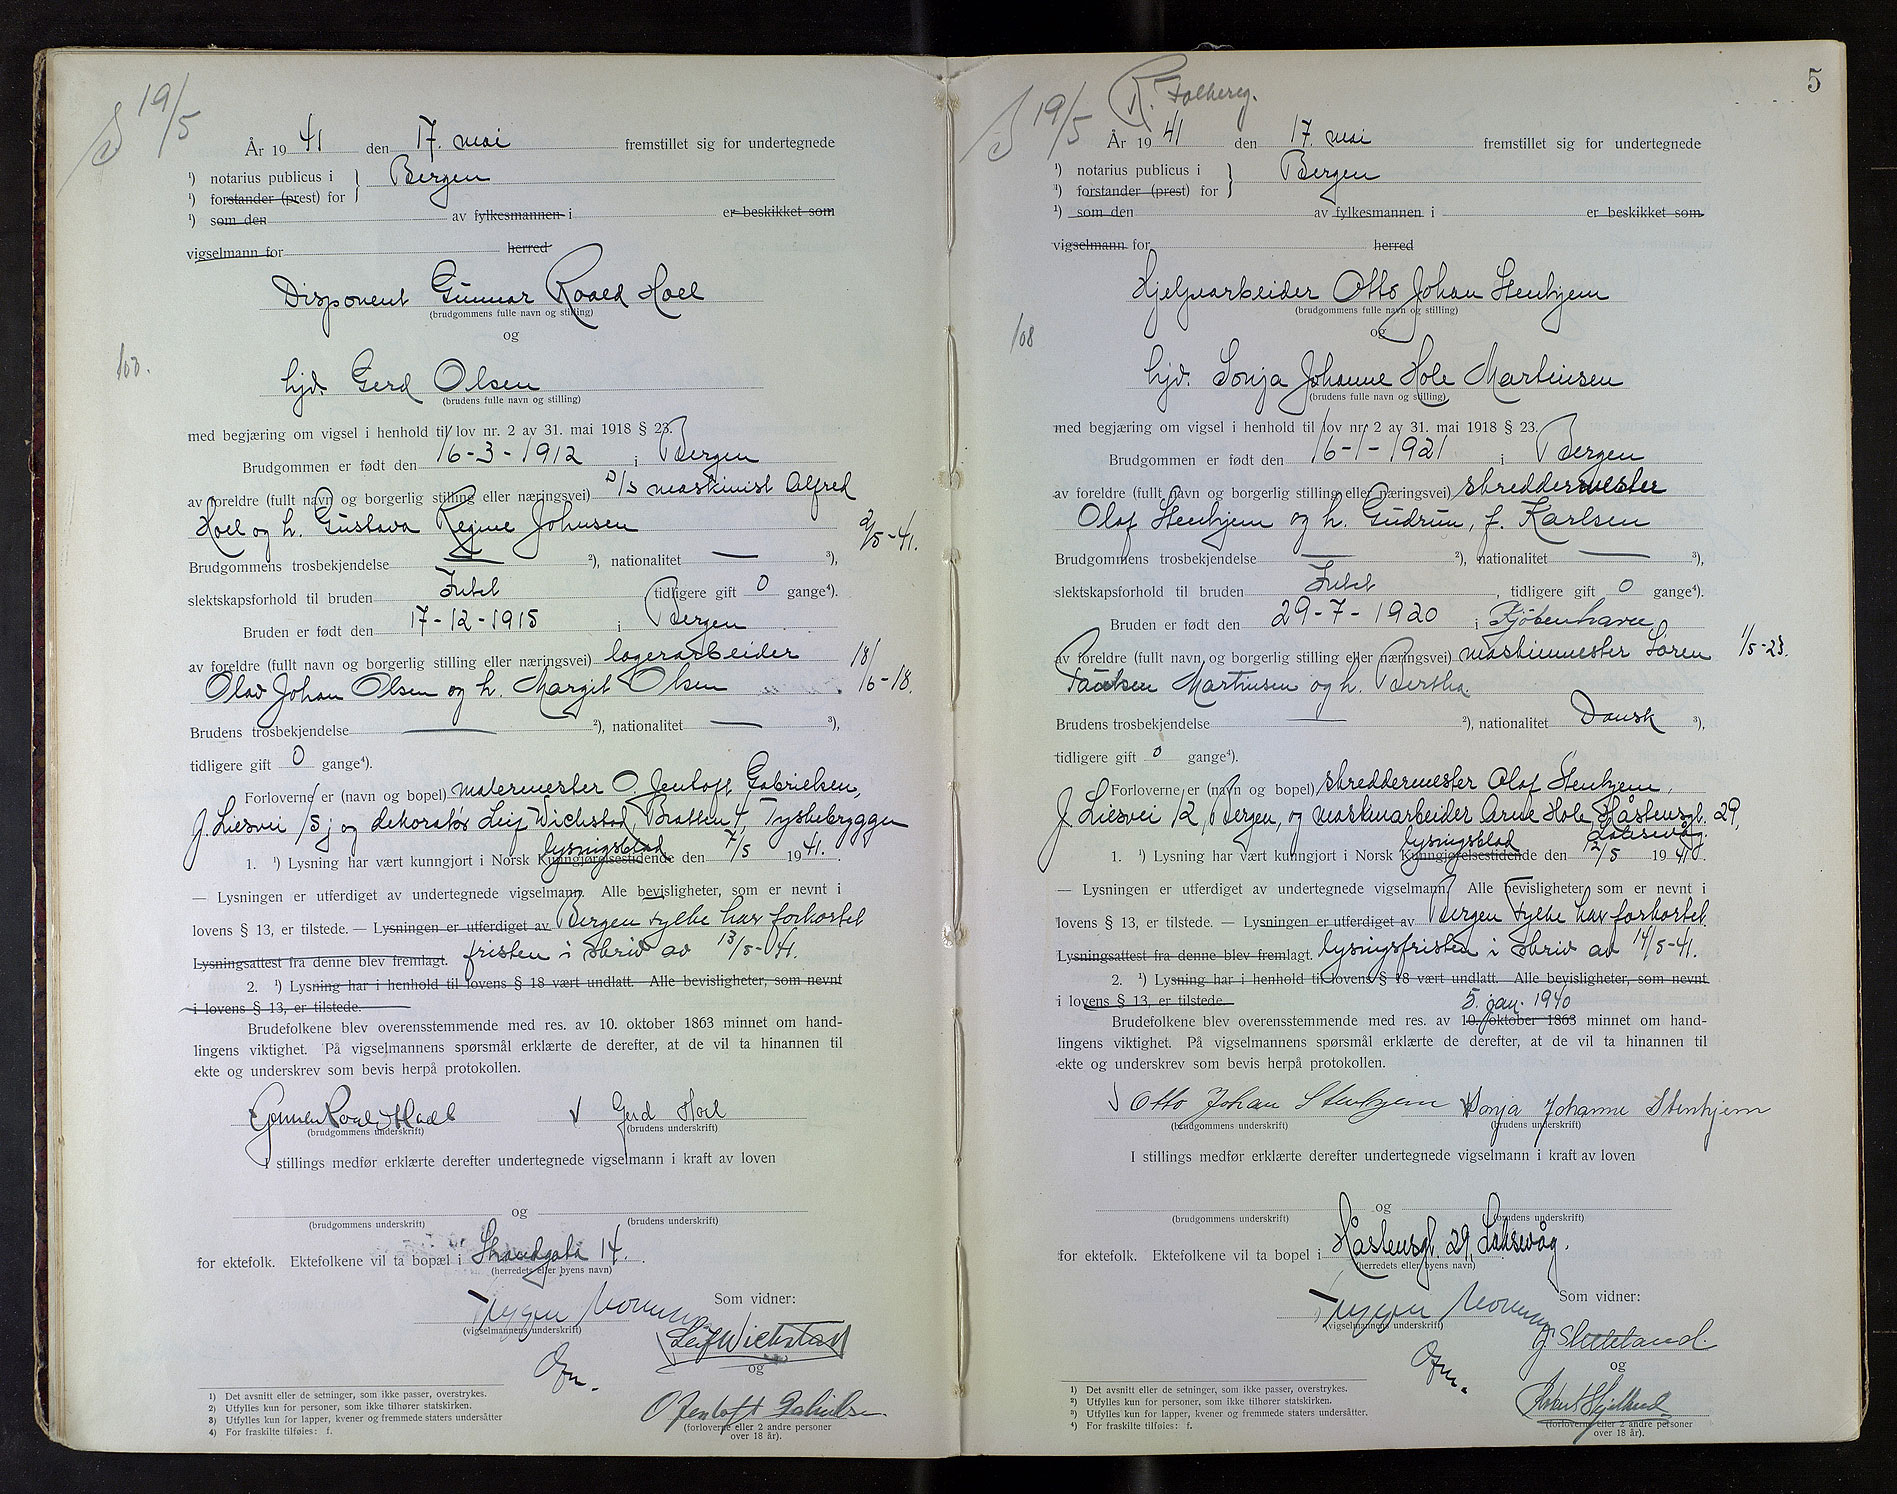 19/5
År 1941 den 17. mai fremstillet sig for undertegnede
¹) notarius publicus i } Bergen
¹) forstander (prest) for
¹) som den av fylkesmannen i er beskikket som
vigselmann for herred
Disponent Gunnar Roald Hoel
(brudgommens fulle navn og stilling)
og
107.
hjd. Gerd Olsen
(brudens fulle navn og stilling)
med begjæring om vigsel i henhold til lov nr. 2 av 31. mai 1918 § 23.
Brudgommen er født den 16-3-1912 i Bergen
av foreldre (fullt navn og borgerlig stilling eller næringsvei) D/S maskinist Alfred
Hoel og h. Gustava Regine Johnsen 2/5-41.
Brudgommens trosbekjendelse — ²), nationalitet — ³),
slektskapsforhold til bruden Intet tidligere gift 0 gange⁴).
Bruden er født den 17-12-1915 i Bergen
av foreldre (fullt navn og borgerlig stilling eller næringsvei) lagerarbeider 18/6-18.
Olav Johan Olsen og h. Margit Olsen
Brudens trosbekjendelse — ²), nationalitet — ³),
tidligere gift 0 gange⁴).
Forloverne er (navn og bopel) malermester O. Jentoft Gabrielsen,
J. Liesvei 15 j og dekoratør Leif Wichstad, Bratten 4, Tyskebryggen
lysningsblad
1. ¹) Lysning har vært kunngjort i Norsk Kunngjørelsestidende den 7/5 1941.
— Lysningen er utferdiget av undertegnede vigselmann. Alle bevisligheter, som er nevnt i
lovens § 13, er tilstede. — Lysningen er utferdiget av Bergen fylke har forkortet
Lysningsattest fra denne blev fremlagt. fristen i skriv av 13/5-41.
2. ¹) Lysning har i henhold til lovens § 18 vært undlatt. Alle bevisligheter, som nevnt
i lovens § 13, er tilstede.
Brudefolkene blev overensstemmende med res. av 10. oktober 1863 minnet om hand-
lingens viktighet. På vigselmannens spørsmål erklærte de derefter, at de vil ta hinannen til
ekte og underskrev som bevis herpå protokollen.
Gunnar Roald Hoel Gerd Hoel
(brudgommens underskrift) (brudens underskrift)
I stillings medfør erklærte derefter undertegnede vigselmann i kraft av loven
og
(brudgommens underskrift) (brudens underskrift)
for ektefolk. Ektefolkene vil ta bopæl i Strandgata 14.
(herredets eller byens navn)
Som vidner:
(vigselmannens underskrift)
Leif Wichstad
og
O Jentoft Gabrielsen
(forloverne eller 2 andre personer
over 18 år).
1) Det avsnitt eller de setninger, som ikke passer, overstrykes.
2) Utfylles kun for personer, som ikke tilhører statskirken.
3) Utfylles kun for lapper, kvener og fremmede staters undersåtter
4) For fraskilte tilføies: f.
5
19/5 R. Folkereg.
År 1941 den 17. mai fremstillet sig for undertegnede
¹) notarius publicus i } Bergen
¹) forstander (prest) for
¹) som den av fylkesmannen i er beskikket som
vigselmann for herred
Hjelpearbeider Otto Johan Stenhjem
(brudgommens fulle navn og stilling)
og
108
hjd. Sonja Johanne Hole Martinsen
(brudens fulle navn og stilling)
med begjæring om vigsel i henhold til lov nr. 2 av 31. mai 1918 § 23.
Brudgommen er født den 16-1-1921 i Bergen
av foreldre (fullt navn og borgerlig stilling eller næringsvei) skreddermester
Olaf Stenhjem og h. Gudrun, f. Karlsen
Brudgommens trosbekjendelse — ²), nationalitet — ³),
slektskapsforhold til bruden Intet, tidligere gift 0 gange⁴).
Bruden er født den 29-7-1920 i Kjøbenhavn
av foreldre (fullt navn og borgerlig stilling eller næringsvei) maskinmester Sören 1/5-23.
Martinsen og h. Bertha
Brudens trosbekjendelse — ²), nationalitet Dansk ³),
tidligere gift 0 gange⁴).
Forloverne er (navn og bopel) skreddermester Olaf Stenhjem,
J. Liesvei 12, Bergen, og maskinarbeider Arne Hole Håstensgt. 29,
lysningsblad Laksevåg.
1. ¹) Lysning har vært kunngjort i Norsk Kunngjørelsestidende den 12/5 1941.
— Lysningen er utferdiget av undertegnede vigselmann. Alle bevisligheter, som er nevnt i
lovens § 13, er tilstede. — Lysningen er utferdiget av Bergen Fylke har forkortet
Lysningsattest fra denne blev fremlagt. lysningsfristen i skriv av 14/5-41.
2. ¹) Lysning har i henhold til lovens § 18 vært undlatt. Alle bevisligheter, som nevnt
i lovens § 13, er tilstede.
5. jan. 1940
Brudefolkene blev overensstemmende med res. av 10. oktober 1863 minnet om hand-
lingens viktighet. På vigselmannens spørsmål erklærte de derefter, at de vil ta hinannen til
ekte og underskrev som bevis herpå protokollen.
Otto Johan Stenhjem Sonja Johanne Stenhjem
(brudgommens underskrift) (brudens underskrift)
I stillings medfør erklærte derefter undertegnede vigselmann i kraft av loven
og
(brudgommens underskrift) (brudens underskrift)
for ektefolk. Ektefolkene vil ta bopel i Håstensgt. 29, Laksevåg.
(herredets eller byens navn)
Som vidner:
(vigselmannens underskrift)
og
(forloverne eller 2 andre personer
over 18 år).
1) Det avsnitt eller de setninger, som ikke passer, overstrykes.
2) Utfylles kun for personer, som ikke tilhører statskirken.
3) Utfylles kun for lapper, kvener og fremmede staters undersåtter.
4) For fraskilte tilføies: f.